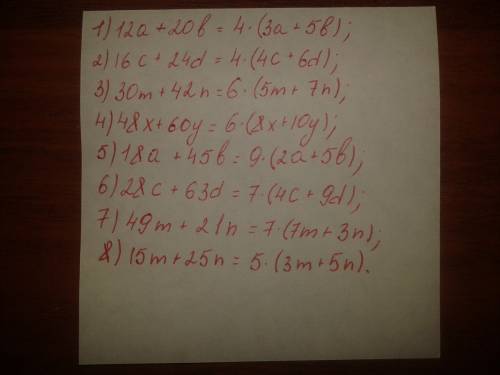 1) 12a + 20в = 4·(3a + 5в);
2) 16c + 24d = 4·(4c + 6d);
3) 30m + 42n = 6·(5m + 7n);
4) 48x + 60y = 6·(8x + 10y);
5) 18a + 45в = 9·(2a + 5в);
6) 28c + 63d = 7·(4c + 9d);
7) 49m + 21n = 7·(7m + 3n);
8) 15m + 25n = 5·(3m + 5n).